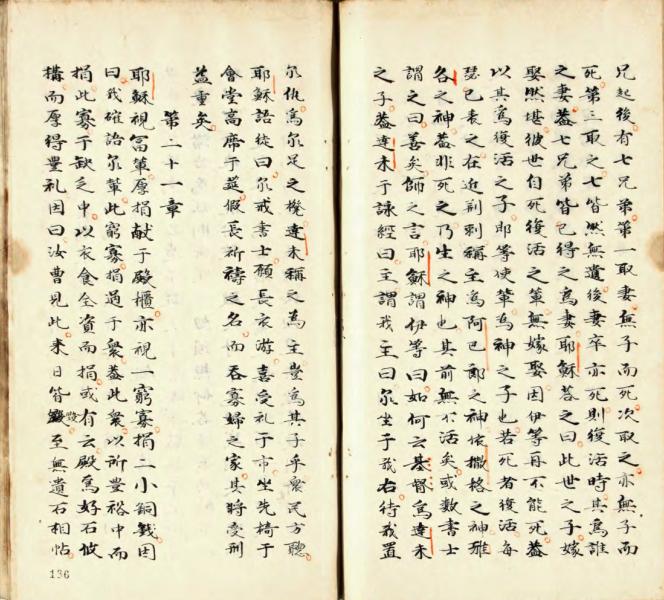 兄起後有七兄弟第一取妻無子而死次取之亦無子而
死第三取之七皆然無遺後妻卒亦死則復活時其為誰
之妻蓋七兄弟皆已得之為妻耶穌荅之曰此世之子嫁
娶然堪彼世自死後活之輩無嫁娶因伊等再不能死蓋
以其為復活之子即等使輩為神之子也若死者復活每
瑟已表之在近荊刺稱主為阿巴郎之神依撒格之神雅
各之神蓋非死之乃生之神也其前無不活矣或數書士
謂之曰善矣師之言耶穌謂伊等曰如何云基督為達未
之子蓋達未于詠經曰主謂我主曰尔坐于我右待我置
尔仇為尔足之櫈達未稱之為主豈為其子乎衆民方聽
耶穌語徒曰尔戒書士願長衣游喜受礼于市坐先椅于
會堂高席于筵假長祈禱之名而吞寡婦之家其將受刑
益重矣
第二十一章
耶穌視冨輩厚捐献于殿櫃亦視一窮寡捐二小銅戥因
曰我確語尔輩此窮寡捐過于衆蓋此衆以所豊裕中而
捐此寡于缺之中以衣食全資而捐或有云殿為好石攸
搆而厚得豊礼因曰汝曹見此来日皆毀至無遺石相帖
136